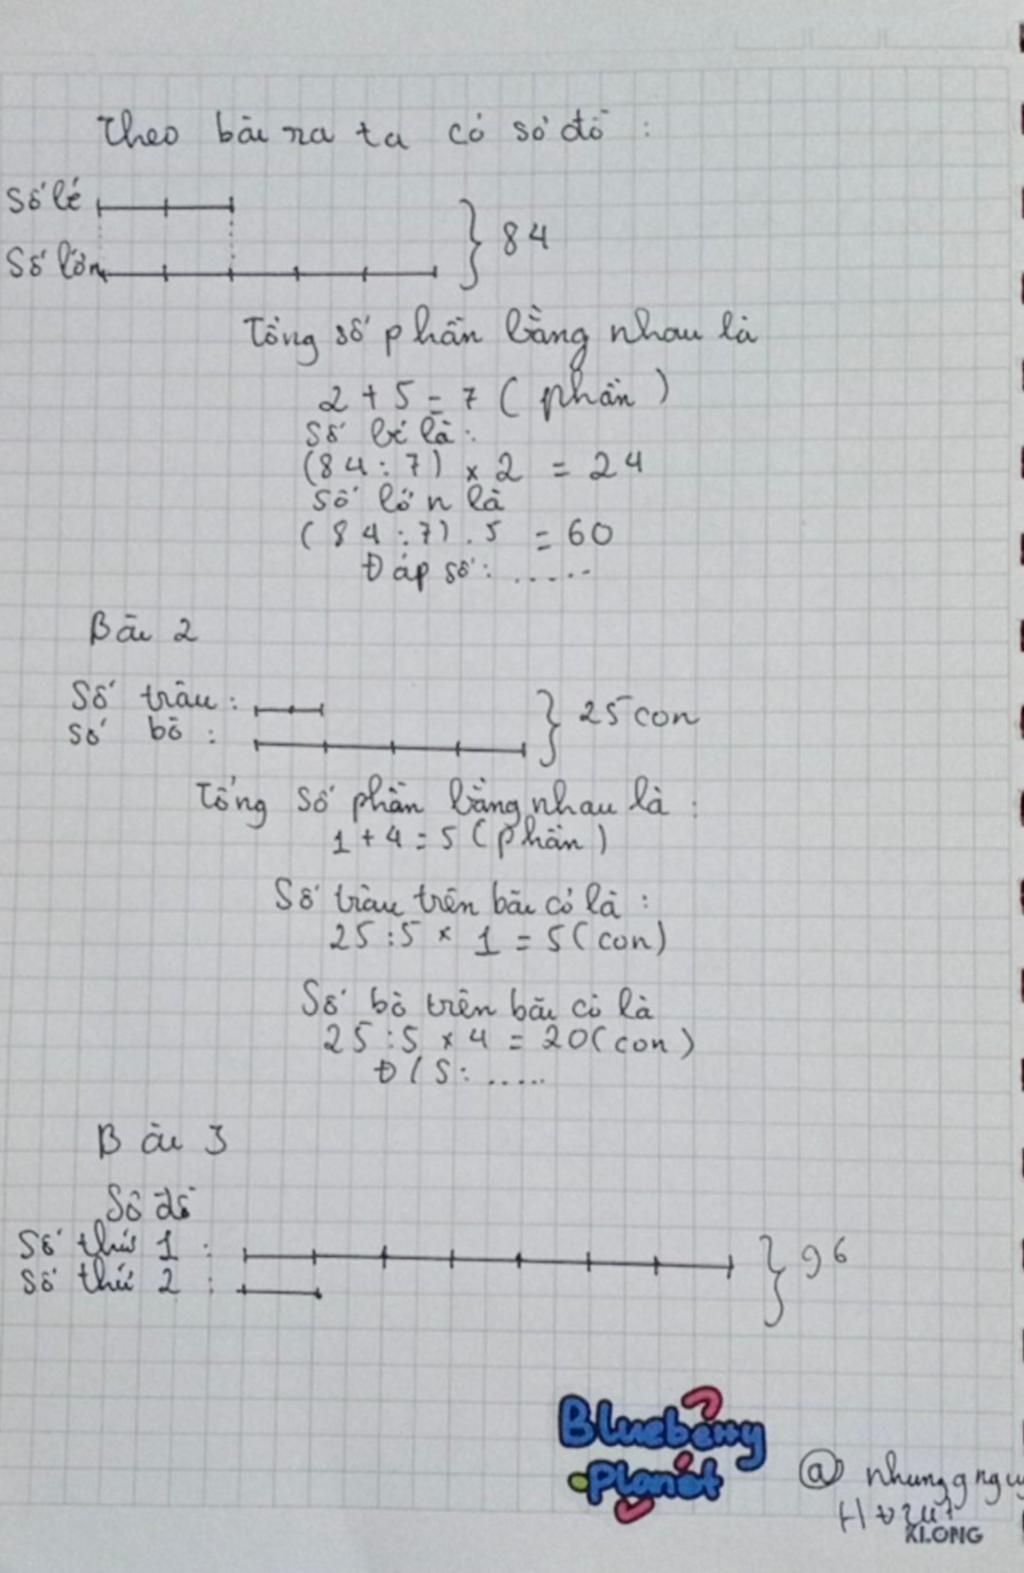 Theo bài ra ta có sơ đồ :
Số bé
Số lớn
84
Tổng số phần bằng nhau là
2 + 5 = 7 ( phần )
Số bé là :
(84 : 7) x 2 = 24
Số lớn là
( 84 : 7) . 5 = 60
Đáp số : ......
Bài 2
Số trâu :
số bò :
25 con
Tổng số phần bằng nhau là :
1 + 4 = 5 ( phần )
Số trâu trên bãi cỏ là :
25 : 5 x 1 = 5 ( con )
Số bò trên bãi cỏ là
25 : 5 x 4 = 20 ( con )
Đ/S : .....
Bài 3
Sơ đồ
Số thứ 1 :
Số thứ 2 :
96
Blueberry
Planet
KLONG